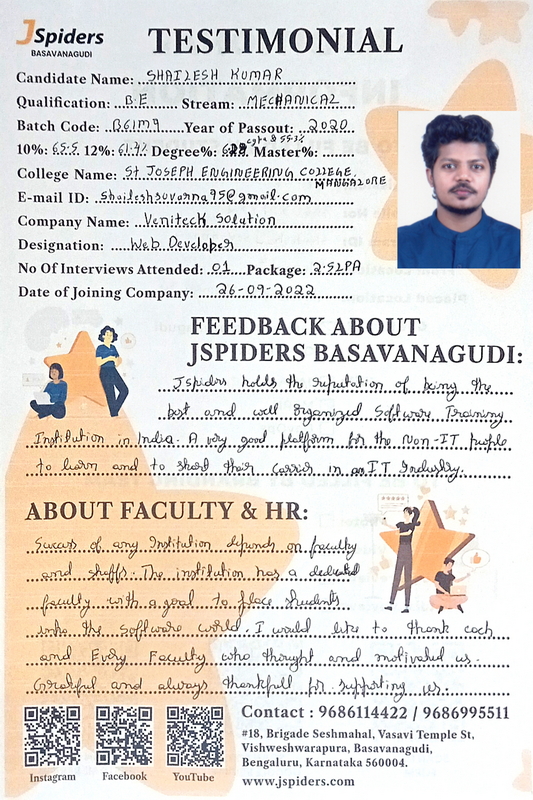 JSpiders
BASAVANAGUDI
TESTIMONIAL
Candidate Name: SHAILESH KUMAR
Qualification: B.E Stream: MECHANICAL
Batch Code: B61M9 Year of Passout: 2020
10%: 65.5 12%: 61.4% Degree%: Master%:
College Name: ST JOSEPH ENGINEERING COLLEGE, MANGALORE
E-mail ID: Shaileshsuvarna95@gmail.com
Company Name: Veniteck Solution
Designation: Web Developer
No Of Interviews Attended: 01 Package: 2.52PA
Date of Joining Company: 26-09-2022
FEEDBACK ABOUT
JSPIDERS BASAVANAGUDI:
Jspiders holds the reputation of being the
best and well organized Software Training
Institution in India. A very good platform for the Non-IT people
to learn and to start their carrier in an IT Industry.
ABOUT FACULTY & HR:
Success of any Institution depends on faculty
and staffs. The institution has a dedicated
faculty with a goal to place students
into the software world. I would like to thank each
and Every Faculty who thought and motivated us.
Grateful and always thankfull for supporting us.
Contact : 9686114422 / 9686995511
#18, Brigade Seshmahal, Vasavi Temple St,
Vishweshwarapura, Basavanagudi,
Bengaluru, Karnataka 560004.
Instagram Facebook YouTube
www.jspiders.com